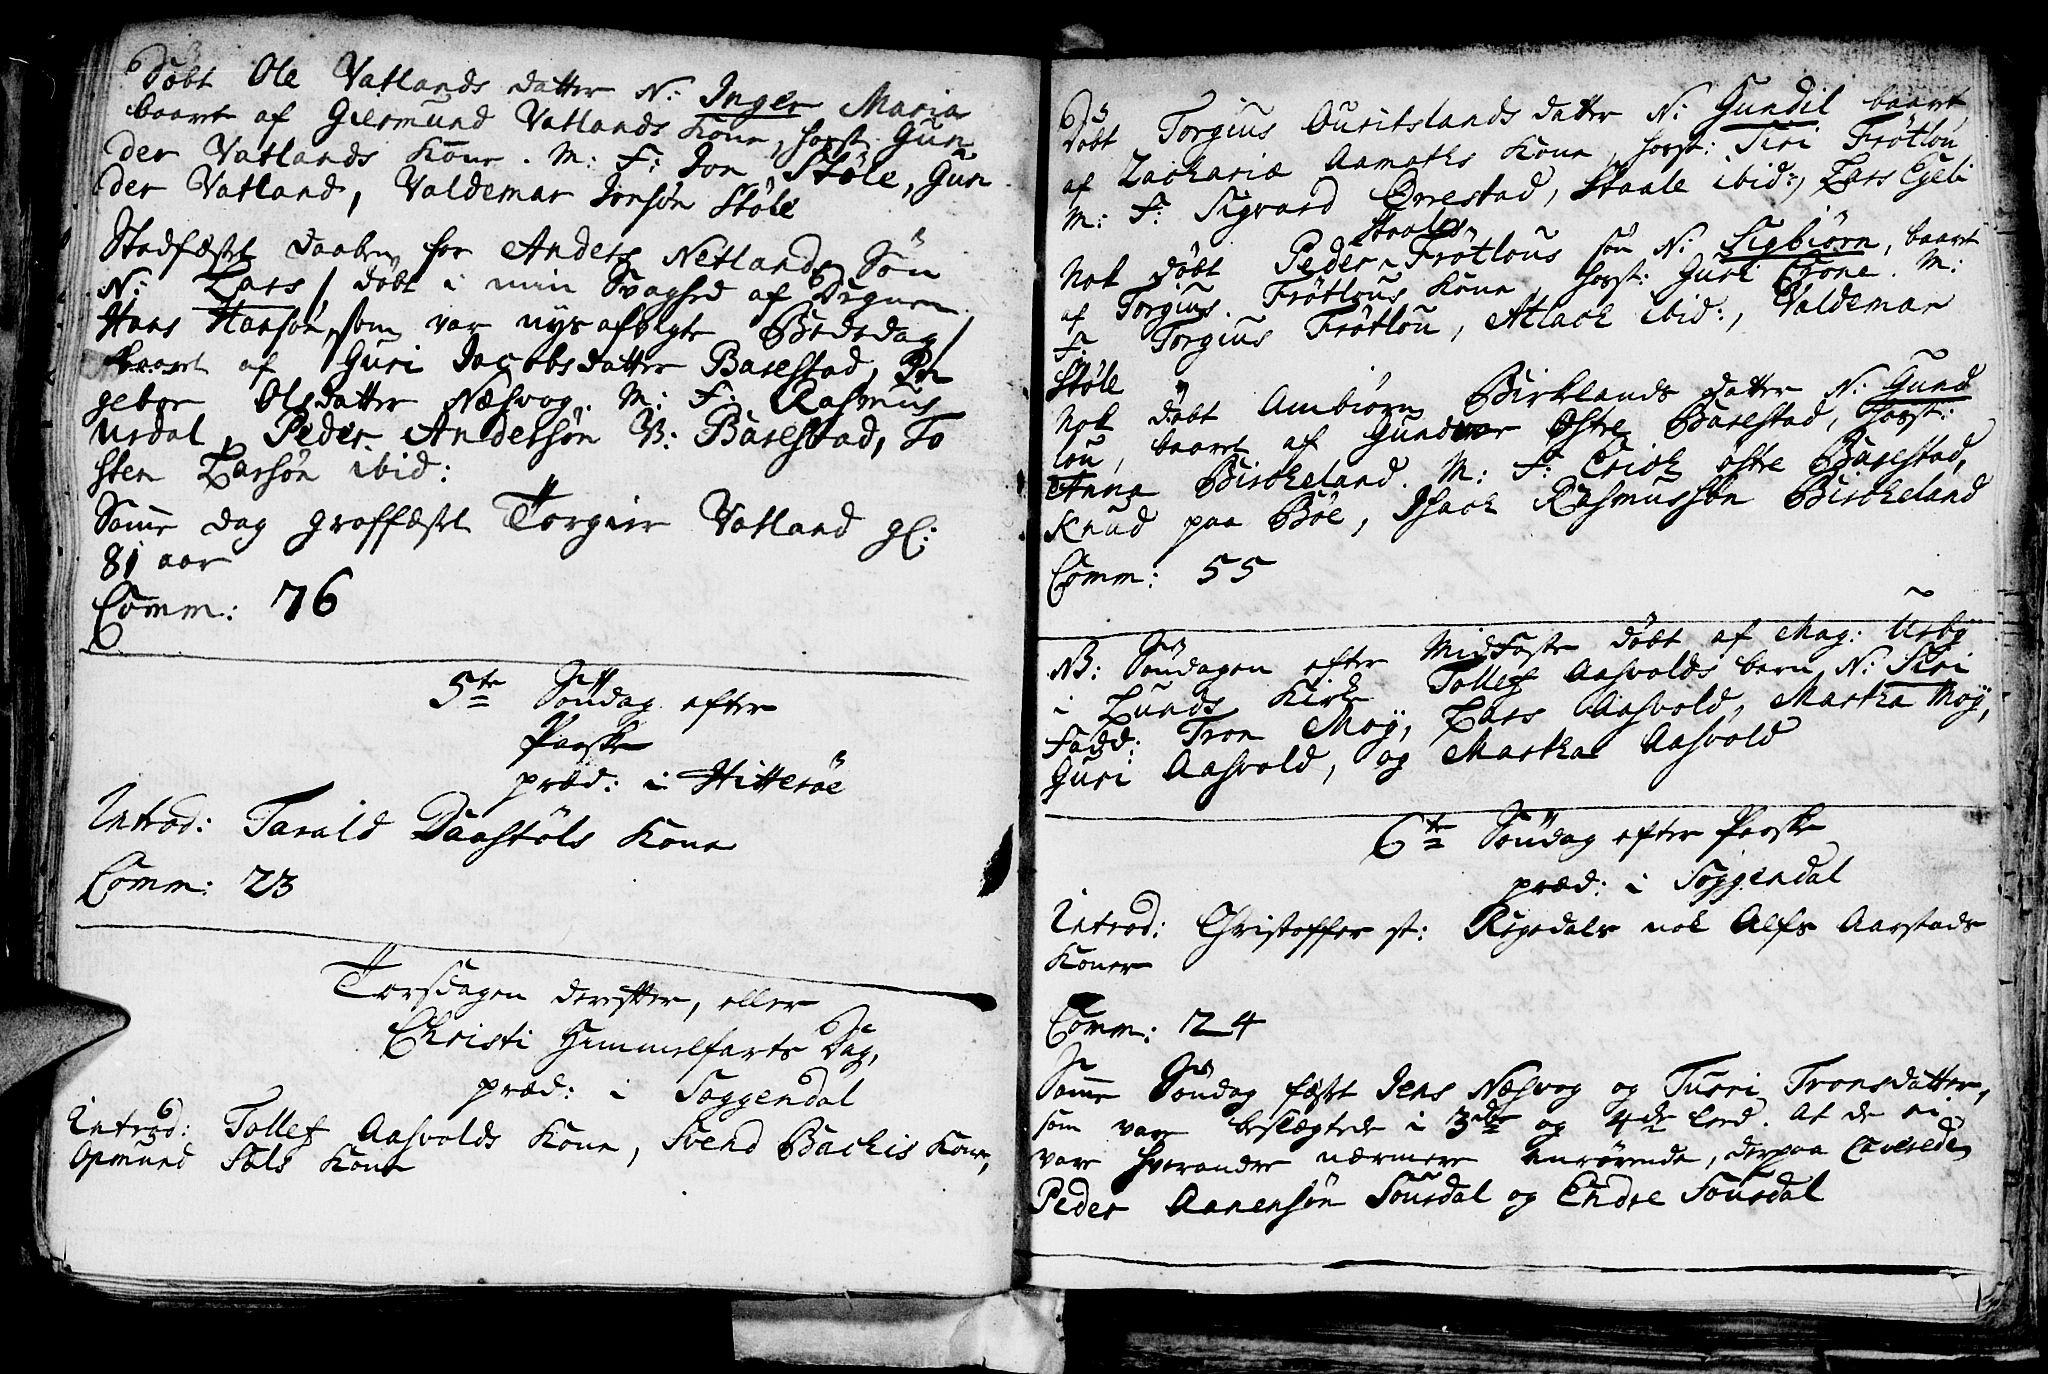 Døbt Ole Vatlands datter N: Inger Maria
baaret af Giermund Vatlands Kone, forst: Gun
der Vatlands Kone. M: F: Jon Støle, Gun
der Vatland, Valdemar Jonsøn Støle
Stadfæstet daaben for Anders Netlands Søn
N: Lars / døbt i min Svaghed af Degnen
Hans Hansøn, som var nyss afvigte Bededag /
baaret af Guri Jacobsdatter Barestad, In
gebor Olsdatter Næsvog. M: F: Rasmus
Urdal, Peder Andersøn V: Barestad, To
sten Larsøn ibid:
Samme dag graffæstet Torgier Vatland gl:
81 aar
Comm: 76
5te Søndag efter
Paaske
præd: i Hitterøe
Introd: Tarald Daastøls Kone
Comm: 23
Torsdagen derefter, eller
Christi Himmelfarts Dag,
præd: i Soggendal
Introd: Tollef Aasvolds Kone, Svend Bachis Kone,
Opmund Sols Kone
Døbt Torgius Ouritslands datter N: Gundil baaret
af Zacharia Aamoths Kone, forst: Siri Frøtlou
M: F: Sigvard Ørrestad, Staale ibid:, Lars Egeli
Staales
Nok døbt Peder Frøtlous søn N: Sigbiørn, baaret
af Torgius Frøtlous Kone, forst: Guri Crone. M:
F: Torgius Frøtlou, Atlack ibid:, Valdemar
Støle
Nok døbt Ambiørn Birklands datter N: Gund
lou, baaret af Gunder østre Barestad, forst:
Anna Birckeland. M: F: Erick østre Barestad,
Knud paa Bøe, Isack Rasmussøn Birckeland
Comm: 55
NB: Søndagen efter Midfaste døbt af Mag: Urby
i Lunds Kirke Tollef Aasvolds barn N: Siri
Fadd: Tron Moy, Lars Aasvold, Martha Moy,
Guri Aasvold, og Martha Aasvold
6te Søndag efter Paaske
præd: i Soggendal
Introd: Christoffer st: Regedals nok Alfs Aarstads
Koner
Comm: 24
Samme Søndag fæst Jens Næsvog og Turri Tronsdatter,
som var beslægtede i 3de og 4de Leed. At de ei
vare hverandre nærmere anrørende, derpaa Caverede
Peder Aanensøn Sousdal og Endre Sousdal